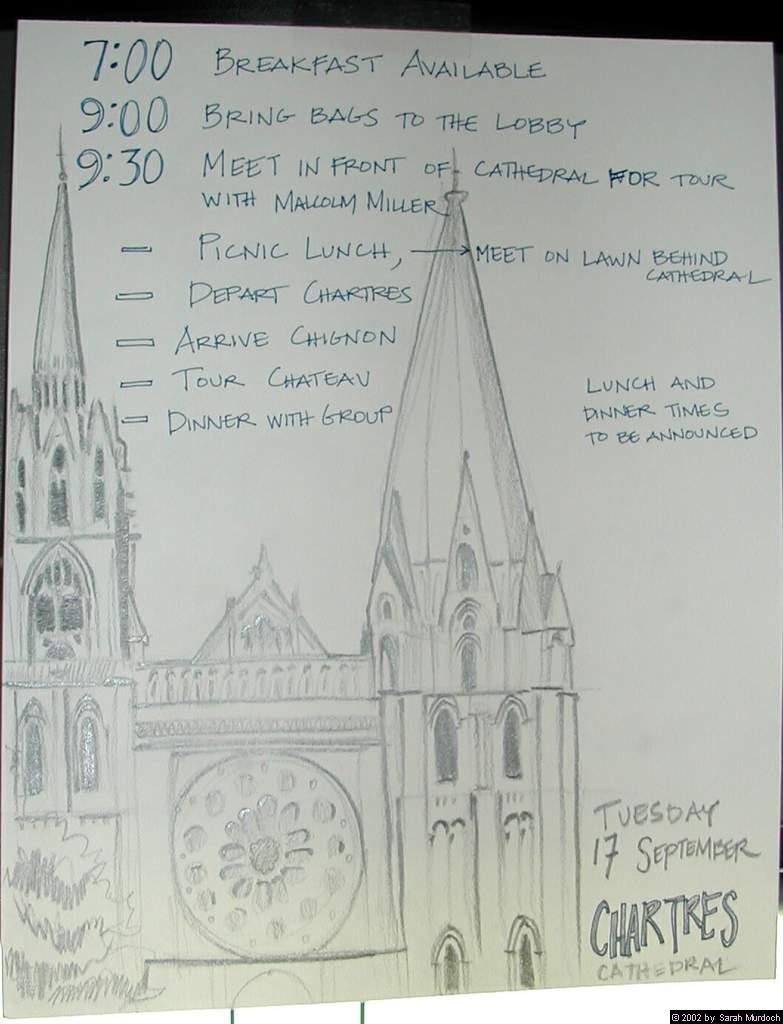 7:00 BREAKFAST AVAILABLE
9:00 BRING BAGS TO THE LOBBY
9:30 MEET IN FRONT OF CATHEDRAL FOR TOUR
WITH MALCOLM MILLER
— PICNIC LUNCH, → MEET ON LAWN BEHIND
CATHEDRAL
— DEPART CHARTRES
— ARRIVE CHIGNON
— TOUR CHATEAU
— DINNER WITH GROUP
LUNCH AND
DINNER TIMES
TO BE ANNOUNCED
TUESDAY
17 SEPTEMBER
CHARTRES
CATHEDRAL
© 2002 by Sarah Murdoch